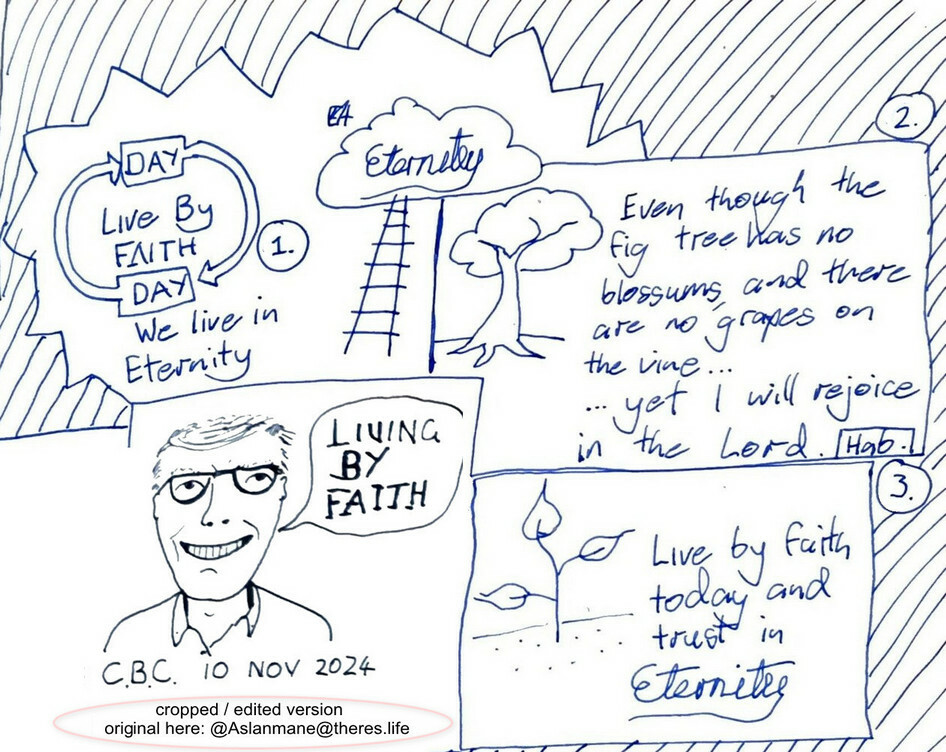 DAY
Live By
FAITH
DAY
We live in
Eternity
1.
Eternity
2.
Even though the
fig tree has no
blossums, and there
are no grapes on
the vine...
... yet I will rejoice
in the Lord. Hab.
LIVING
BY
FAITH
C.B.C. 10 NOV 2024
3.
Live by faith
today and
trust in
Eternity
cropped / edited version
original here: @Aslanmane@theres.life